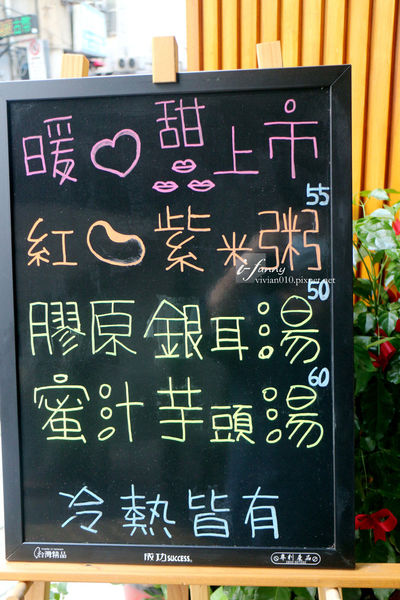 暖♡甜上市
55
紅紫米粥
i-fanny
vivian010.pixnet.net
50
膠原銀耳湯
60
蜜汁芋頭湯
冷熱皆有
台灣精品
成功 SUCCESS.
專利產品